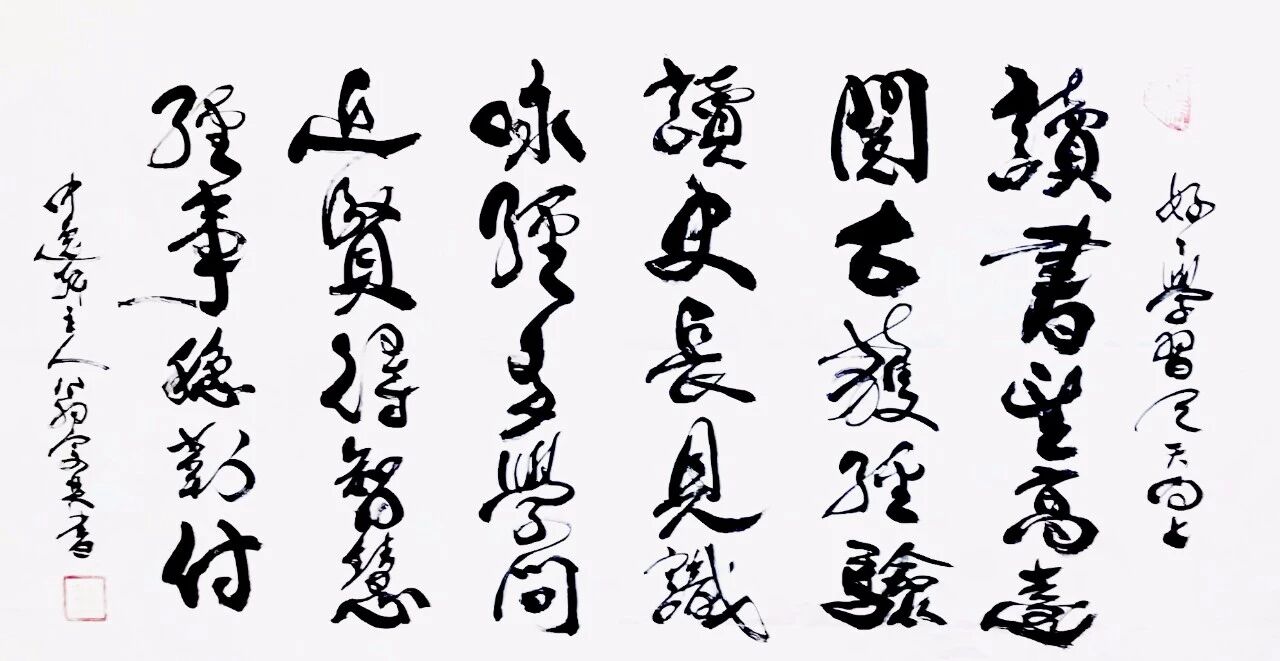 好好學習天天向上
讀書望高遠
閱古獲經驗
讀史長見識
咏經多學問
近賢得智慧
經事穩對付
主人書